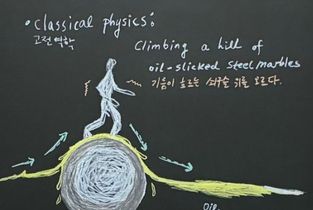 • Classical physics:
고전 역학
Climbing a hill of
oil-slicked steel marbles
기름이 흐르는 쇠구슬 위를 오르다.
Oil.